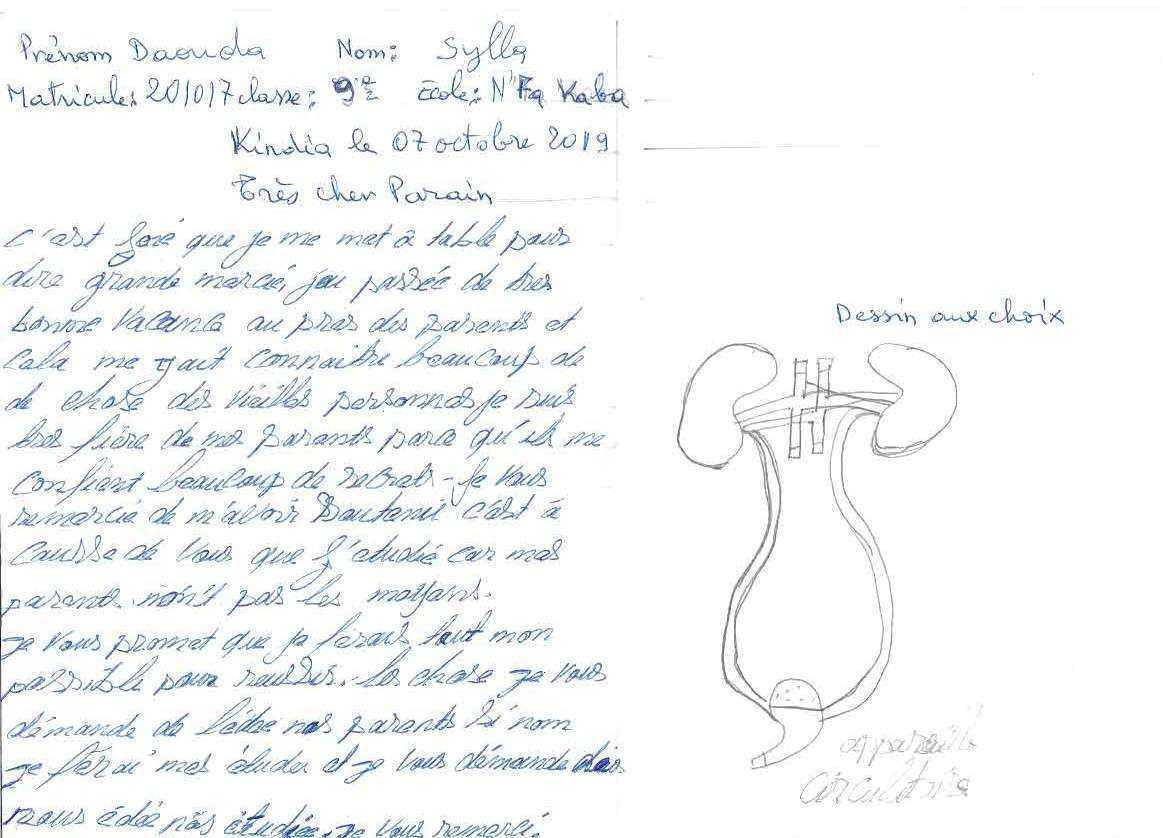 Prénom Daouda Nom: Sylla
Matricule: 201017 classe: 9e2 École: N'Fa Kaba
Kindia le 07 octobre 2019
Très cher Parain
c'est joie que je me met à table pour
dire grande marcie, j'ai passée de tres
bonne Vacance au pras des parents et
Cala me fait connaitre beaucoup de
de chose des vieilles personnas je suis
tras fière de mes parants parce qu'ils me
confient beaucoup de secrets - Je vous
remarcie de m'avoir Soutenie c'est à
causse de vous que j'étudie car mas
parents n'on't pas les moyans.
Je vous promet que je ferais tout mon
possible pour reussir. les chose je vous
démande de l'aidee nos parents si nom
je ferai mes études et je vous démande
nous édée nos étudiée. Je vous remarci.
Dessin aux choix
appareil
circulatoire